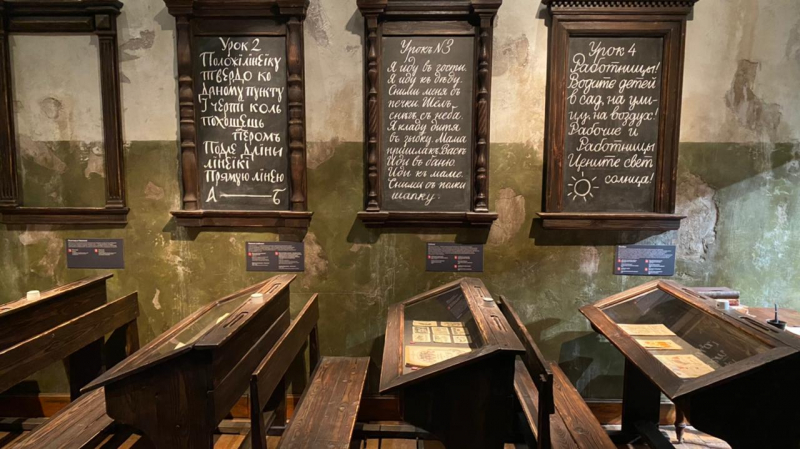 Урок 2
Положi лiнѣiку
твердо ко
дному пункту
I черти коль
похощешь
перомъ
Подле длiны
лiнѣiкi
прямую лiнѣю
А Б
Урокъ №3
Я иду въ гости.
Я иду къ дѣду.
Сними меня съ
печки Шёлъ
снѣгъ съ неба.
Я кладу дитя
въ зыбку. Мама
пришла къ Васѣ
Иди въ баню.
Иди къ маме.
Сними съ полки
шапку.
Урок 4
Работницы!
Водите детей
в сад, на ули-
цу, на воздух!
Рабочие и
Работницы
Цените свет
солнца!